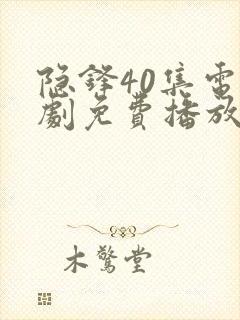 隐鋒40集電
劇免費播放
木驚堂